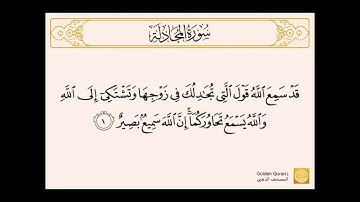 سُورَةُ المُجَادلَةِ
قَدۡ سَمِعَ ٱللَّهُ قَوۡلَ ٱلَّتِي تُجَٰدِلُكَ فِي زَوۡجِهَا وَتَشۡتَكِيٓ إِلَى ٱللَّهِ
وَٱللَّهُ يَسۡمَعُ تَحَاوُرَكُمَآۚ إِنَّ ٱللَّهَ سَمِيعُۢ بَصِيرٌ ١
Golden Quran |
المصحف الذهبي